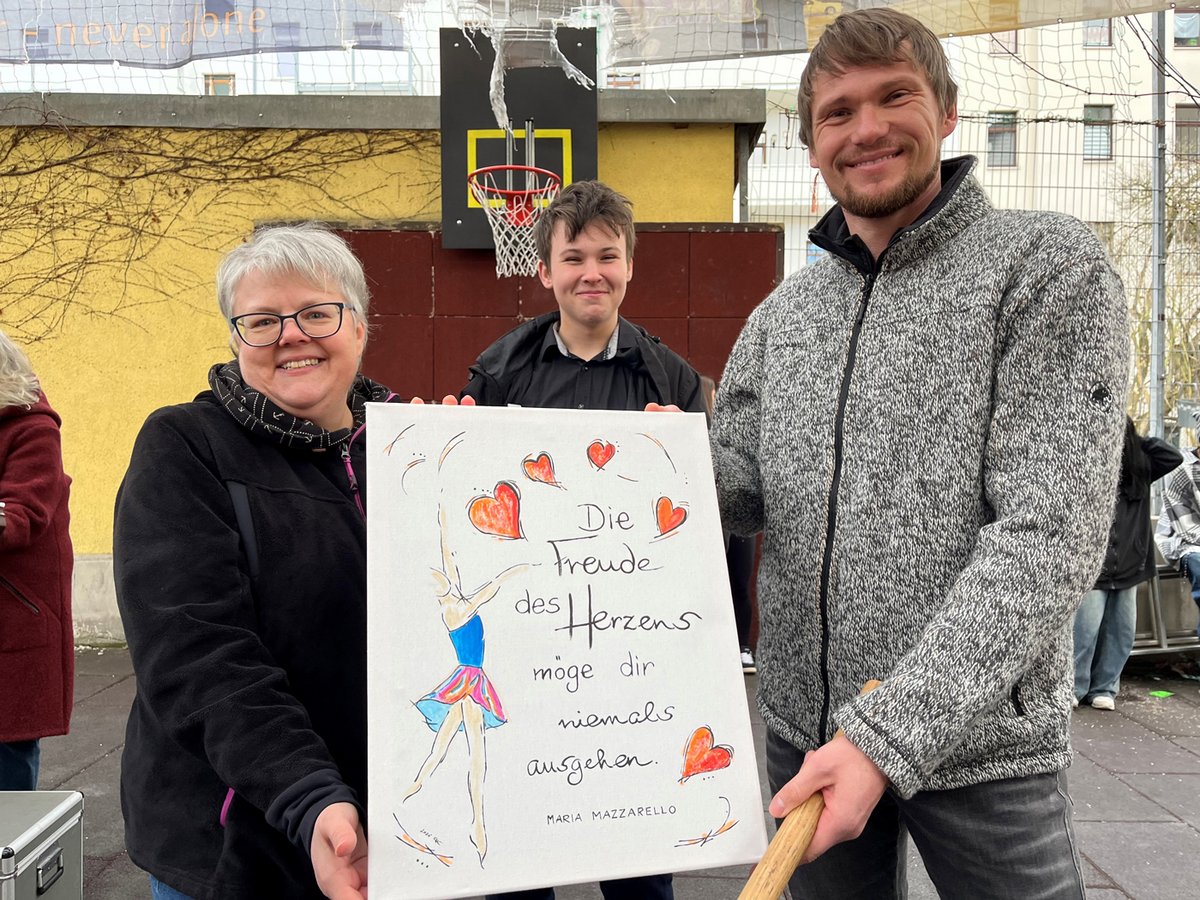 - never alone
Die
Freude
des Herzens
möge dir
niemals
ausgehen.
MARIA MAZZARELLO